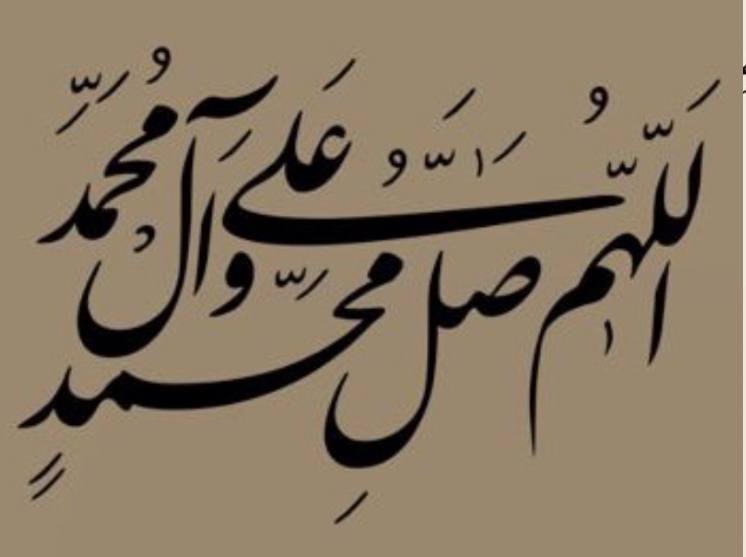 اَللّٰهُمَّ صَلِّ عَلَى مُحَمَّدٍ وَآلِ مُحَمَّدٍ